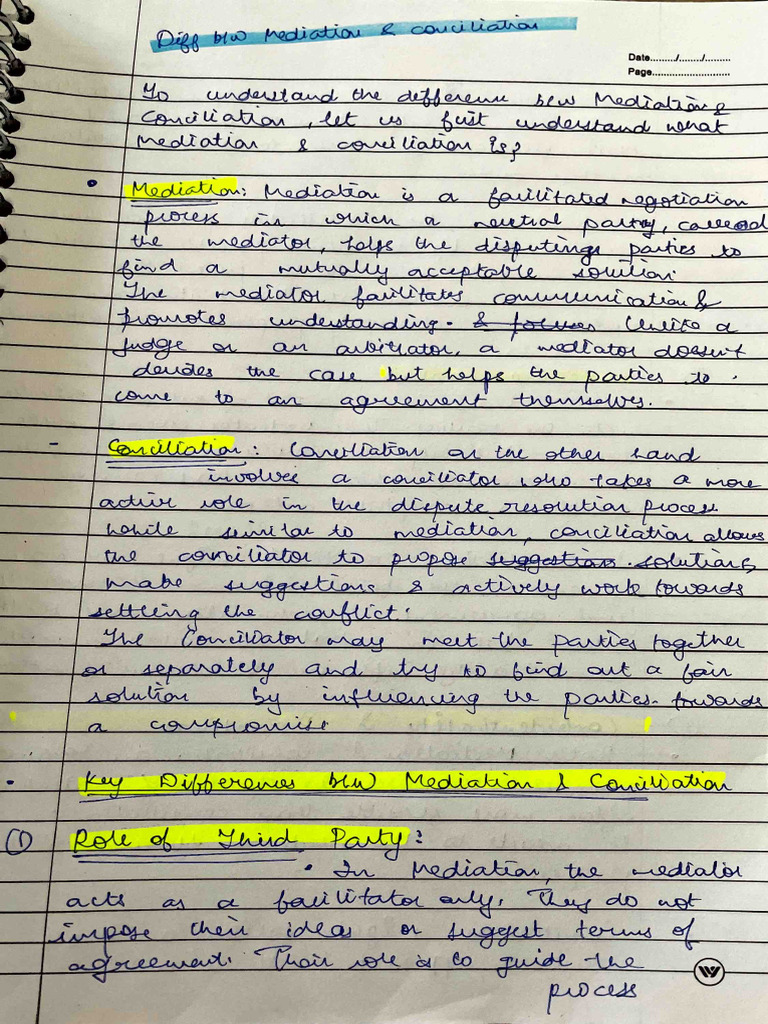 Diff b/w Mediation & conciliation
Date......../......../........
Page...........................
To understand the difference b/w Mediation &
Conciliation, let us first understand what
Mediation & conciliation is?
• Mediation: Mediation is a facilitated negotiation
process in which a neutral party, called
the mediator, helps the disputings parties to
find a mutually acceptable solution.
The mediator facilitates communication &
promotes understanding. & focuses Unlike a
judge or an arbitrator, a mediator doesn't
decides the case but helps the parties to
come to an agreement themselves.
- Conciliation: Conciliation on the other hand
involves a conciliator who takes a more
active role in the dispute resolution process
while similar to mediation, conciliation allows
the conciliator to propose suggestions solutions,
make suggestions & actively work towards
settling the conflict.
The Conciliator may meet the parties together
or separately and try to find out a fair
solution by influencing the parties towards
a compromise
• Key Differences b/w Mediation & Conciliation
① Role of Third Party:
• In Mediation, the mediator
acts as a facilitator only. They do not
impose their ideas or suggest terms of
agreement. Their role is to guide the
process